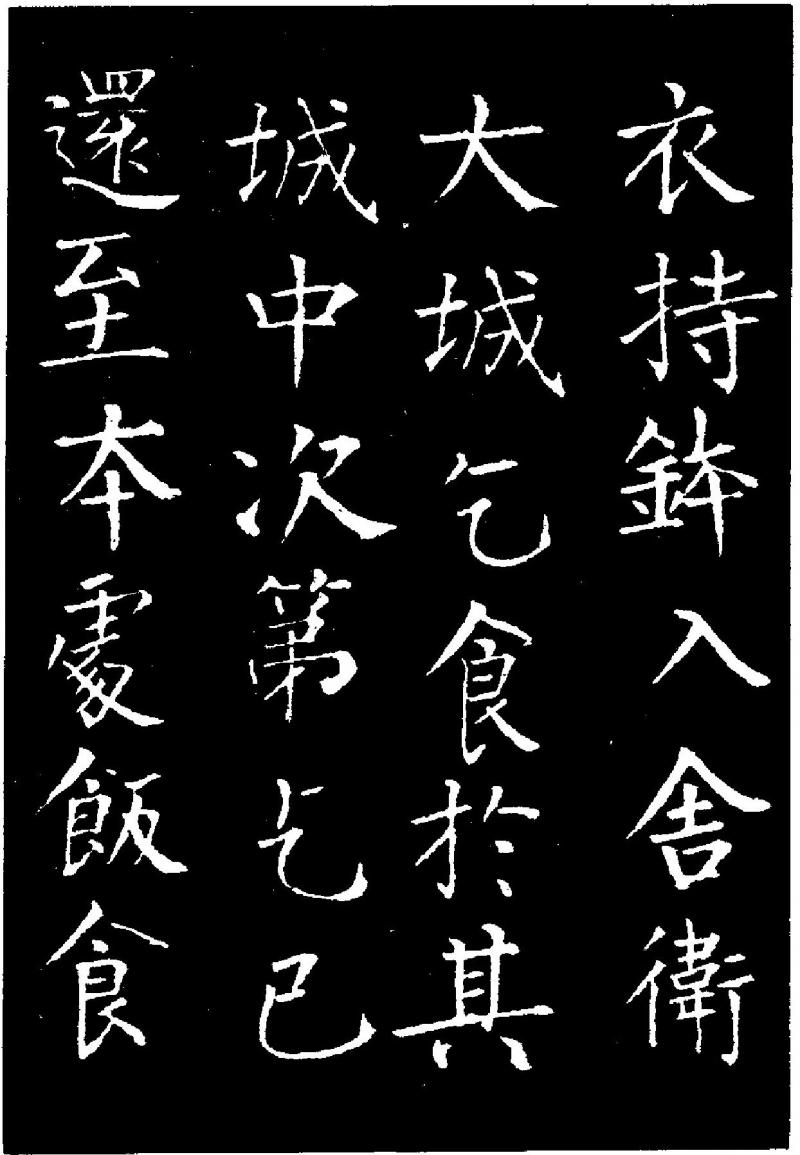 衣持鉢入舎衛
大城乞食於其
城中次第乞已
還至本處飯食